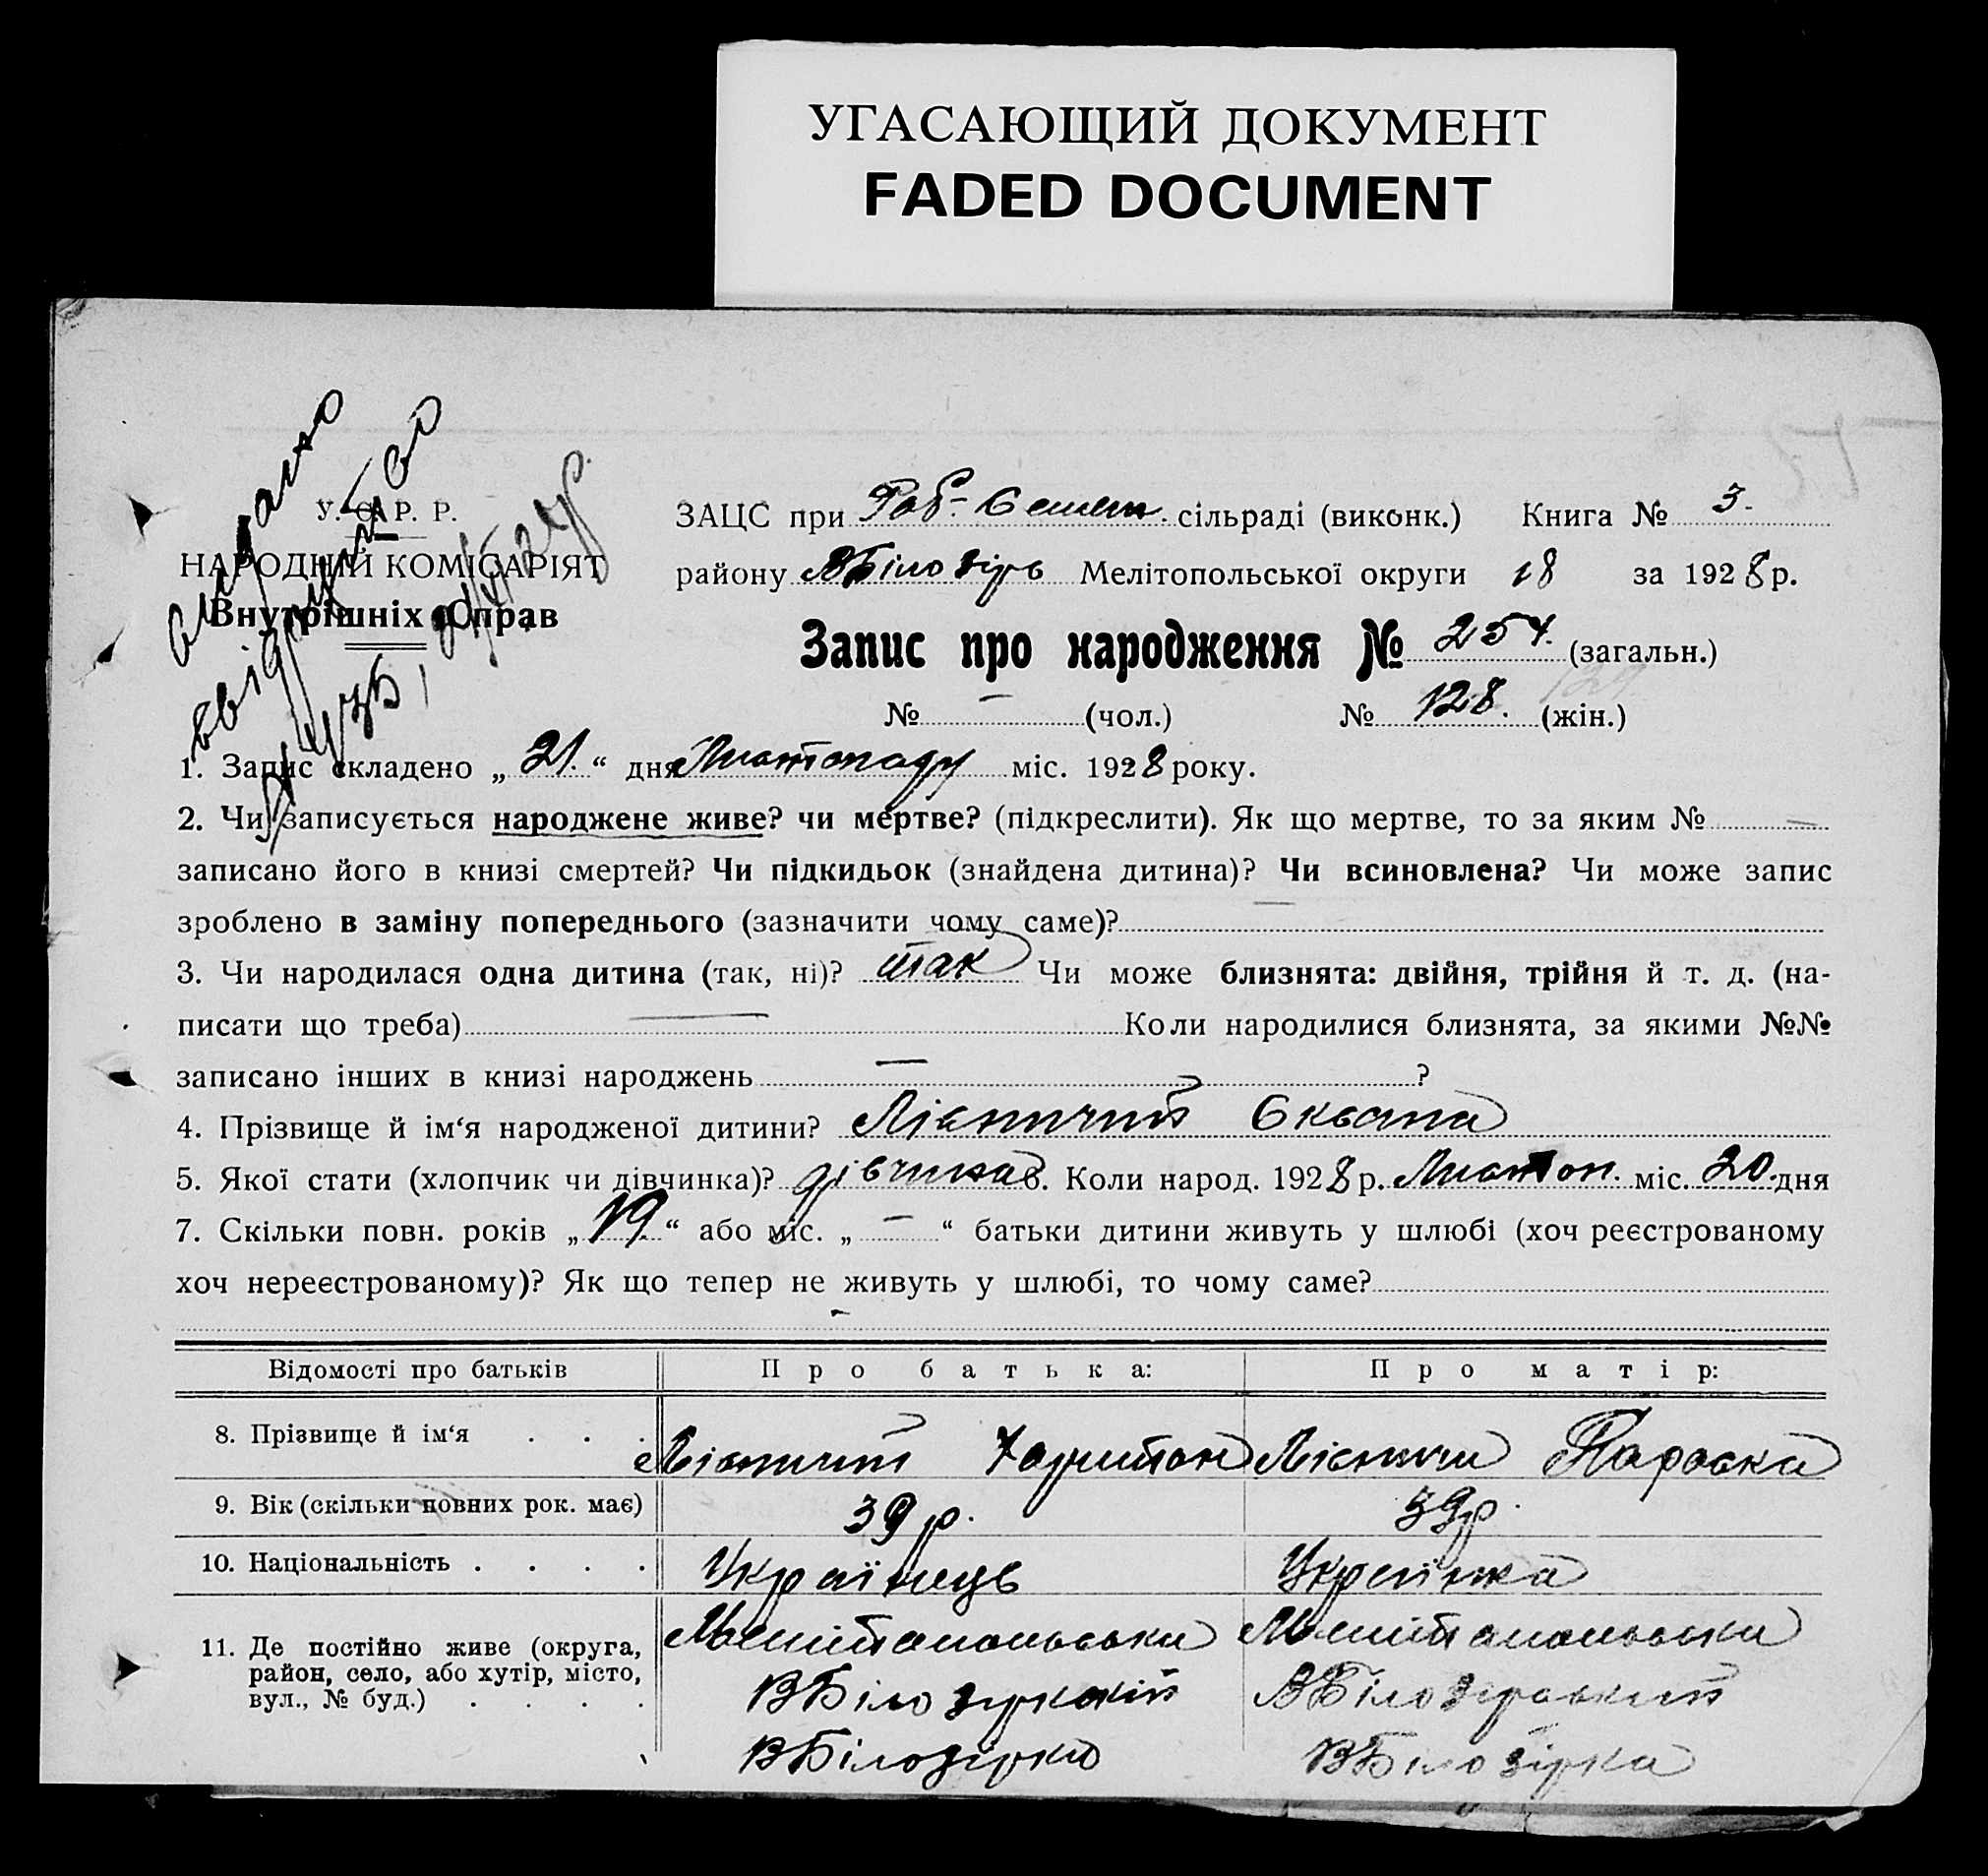 УГАСАЮЩИЙ ДОКУМЕНТ
FADED DOCUMENT
У. С. Р. Р.
НАРОДНІЙ КОМІСАРІЯТ
Внутрішніх Справ
ЗАЦС при Роб- Селян. сільраді (виконк.) Книга № 3.
району ВБілозірь Мелітопольської округи 18 за 1928 р.
Запис про народження № 254. (загальн.)
№ — (чол.) № 128. (жін.)
1. Запис складено „ 21. “ дня Листопаду міс. 1928 року.
2. Чи записується народжене живе? чи мертве? (підкреслити). Як що мертве, то за яким № —
записано його в книзі смертей? Чи підкидьок (знайдена дитина)? Чи всиновлена? Чи може запис
зроблено в заміну попереднього (зазначити чому саме)? —
3. Чи народилася одна дитина (так, ні)? так Чи може близнята: двійня, трійня й т. д. (на-
писати що треба) — Коли народилися близнята, за якими №№
записано інших в книзі народжень — ?
4. Прізвище й ім‘я народженої дитини? Лісничий
5. Якої стати (хлопчик чи дівчинка)? дівчинка 6. Коли народ. 1928 р. Листоп. міс. 20. дня
7. Скільки повн. років „ 19. “ або міс. „ — “ батьки дитини живуть у шлюбі (хоч реєстрованому
хоч нереєстрованому)? Як що тепер не живуть у шлюбі, то чому саме?
—
Відомості про батьків Про батька: Про матір:
8. Прізвище й ім‘я . . . Лісничий Харитон Лісничи Параска
9. Вік (скільки повних рок. має) 39 р. 39 р.
10. Національність . . . . Українець Українка
11. Де постійно живе (округа, Мелітопольська Мелітопольська
район, село, або хутір, місто, ВБілозірський ВБілозірський
вул., № буд.) . . . . ВБілозірка ВБілозірка